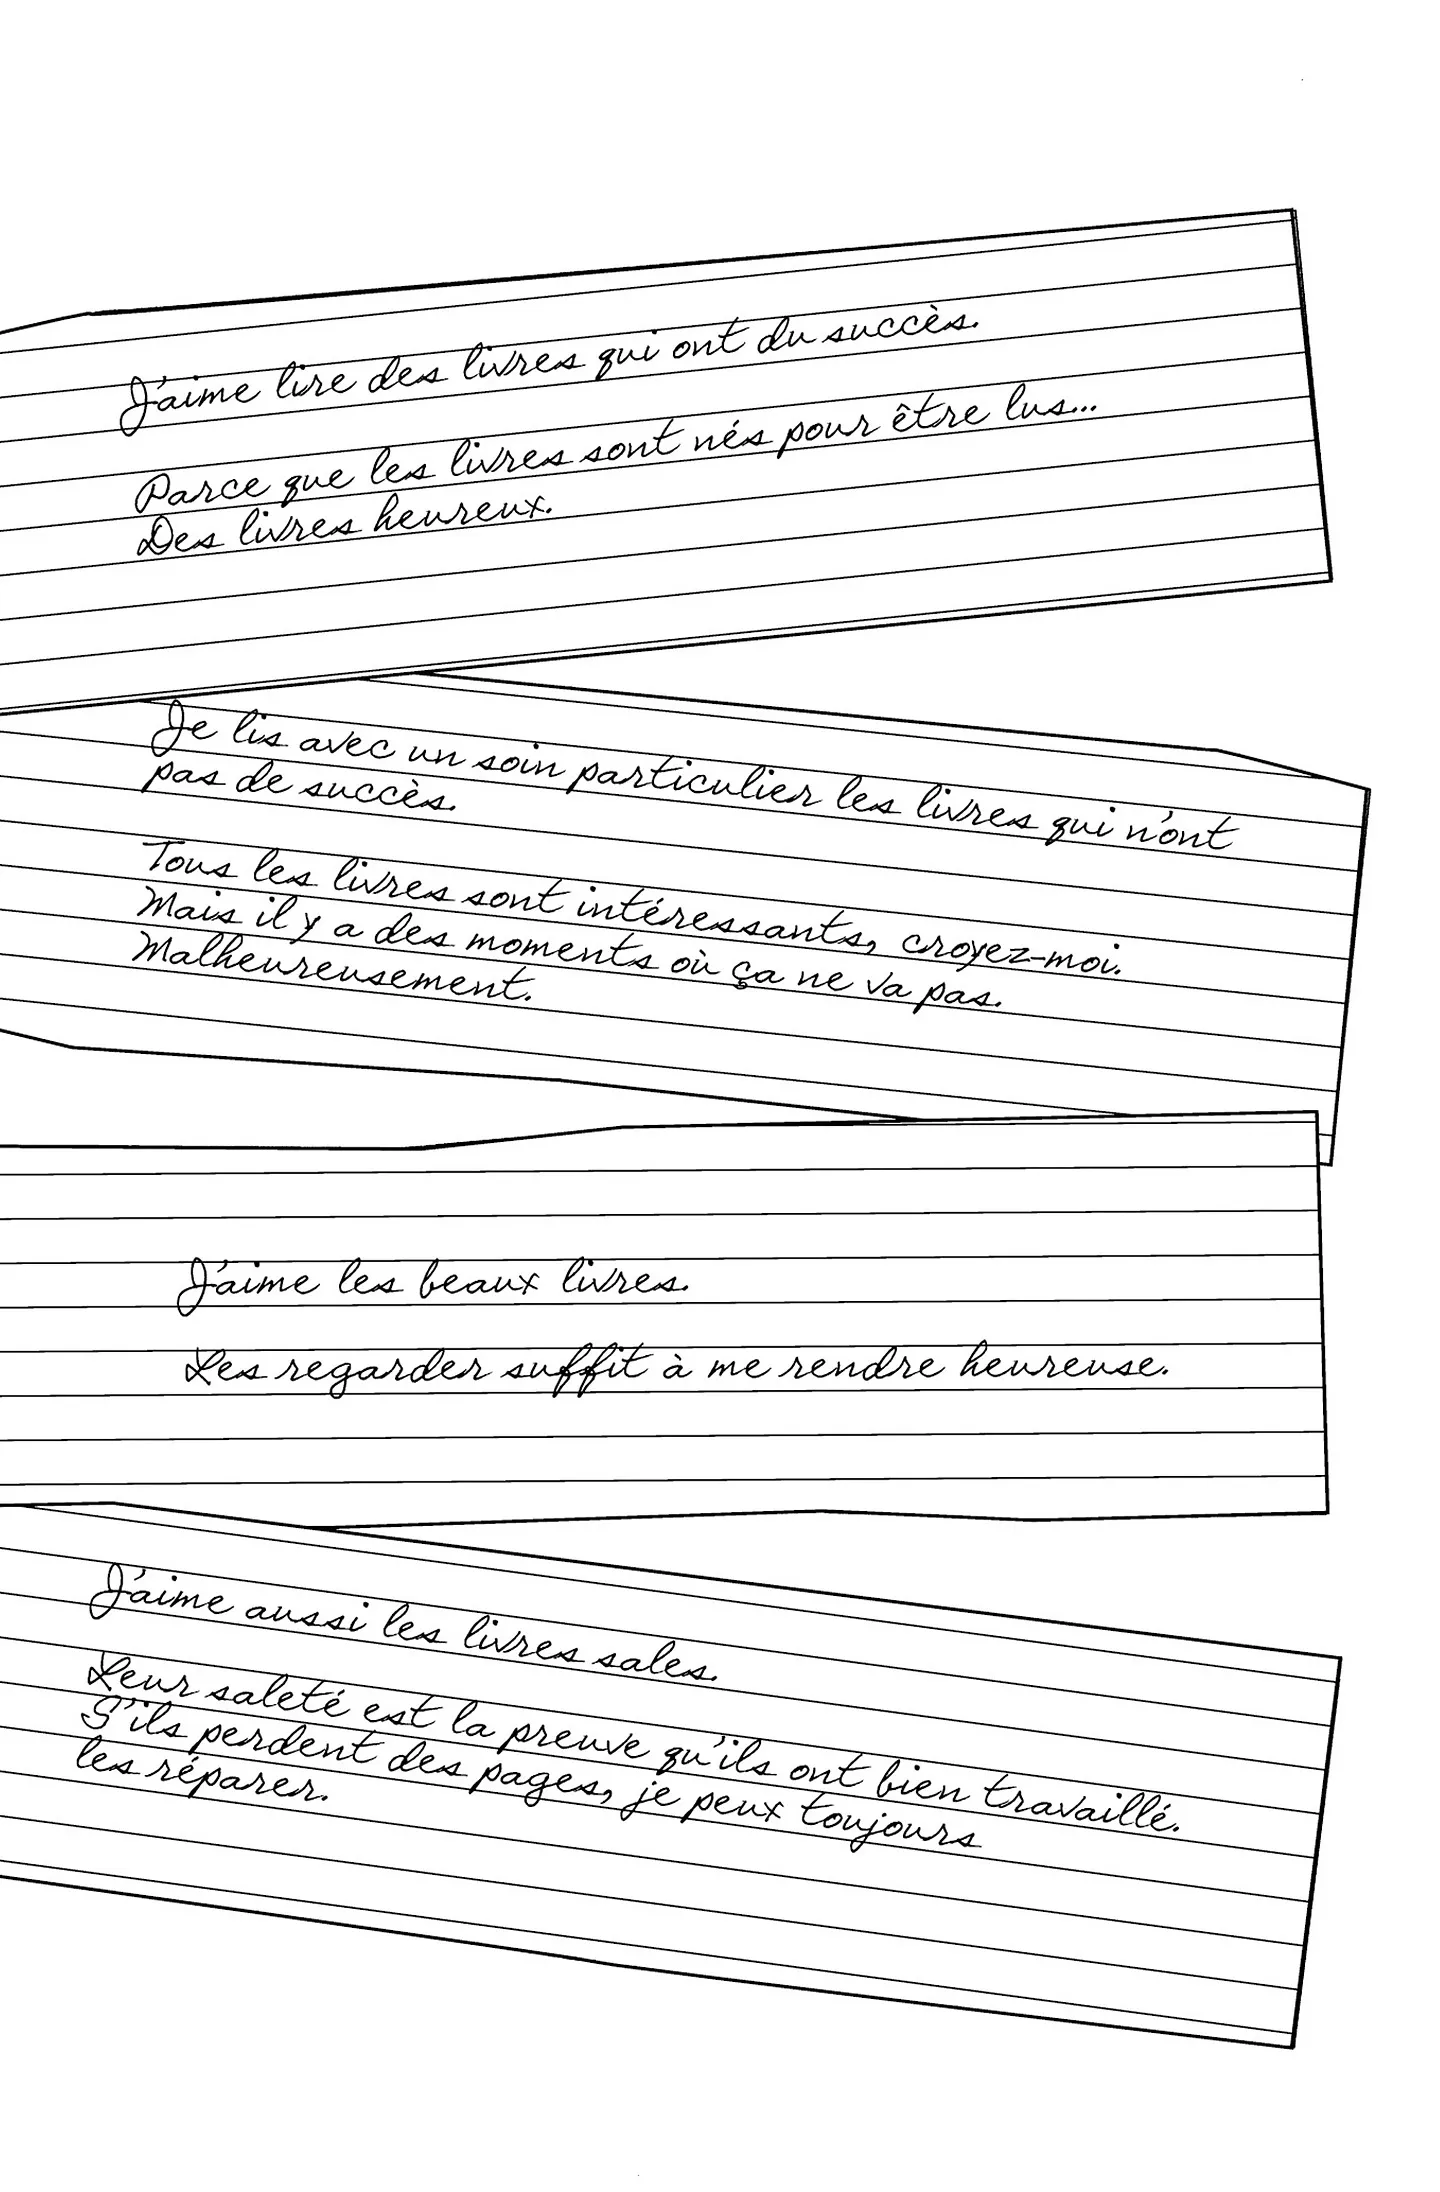 J'aime lire des livres qui ont du succès.
Parce que les livres sont nés pour être lus...
Des livres heureux.
Je lis avec un soin particulier les livres qui n'ont
pas de succès.
Tous les livres sont intéressants, croyez-moi.
Mais il y a des moments où ça ne va pas.
Malheureusement.
J'aime les beaux livres.
Les regarder suffit à me rendre heureuse.
J'aime aussi les livres sales.
Leur saleté est la preuve qu'ils ont bien travaillé.
S'ils perdent des pages, je peux toujours
les réparer.